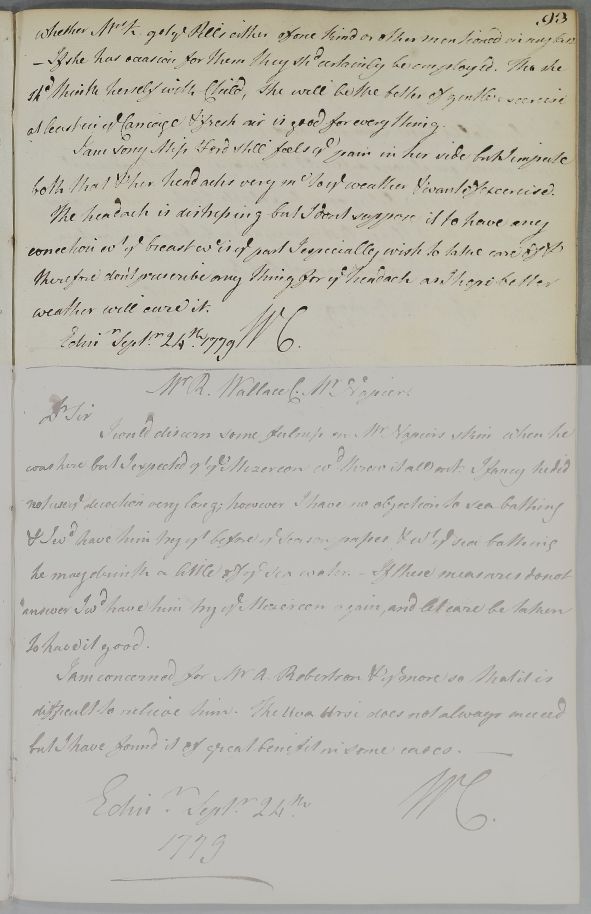 93
whether Mrs K. get ye Pills either of one kind or other mentioned in my last
- If she has occasion for them they shd certainly be employed. Tho she
shd think herself with Child, she will be the better of gentle exercise
at least in ye Carriage & fresh air is good for every thing.
I am sorry Miss Herd still feels ye pain in her side but I impute
both that & her headachs very mch to ye weather & want of exercise.
The headach is distressing but I dont suppose it to have any
conection wt ye breast wc is ye part I especially wish to take care of &
therefore dont prescribe any thing for ye headach as I hope better
weather will cure it.
Edinr Septr 24th 1779 WC.
Mr R. Wallace C. Mr Napier.
Dr Sir
I could discern some fulness on Mr Napiers skin when he
was here but I expected yt ye Mezereon wd throw it all out. I fancy he did
not use ye decoction very long; however I have no objection to sea bathing
& I wd have him try yt before ye season passes & wt ye sea bathing
he may drink a little of ye sea water. - If these measures do not
answer I wd have him try ye Mezereon again, and let care be taken
to have it good.
I am concerned for Mr A. Robertson & ye more so that it is
difficult to relieve him. The Uva Ursi does not always succeed
but I have found it of great benefit in some cases. -
Edinr Septr 24th WC.
1779